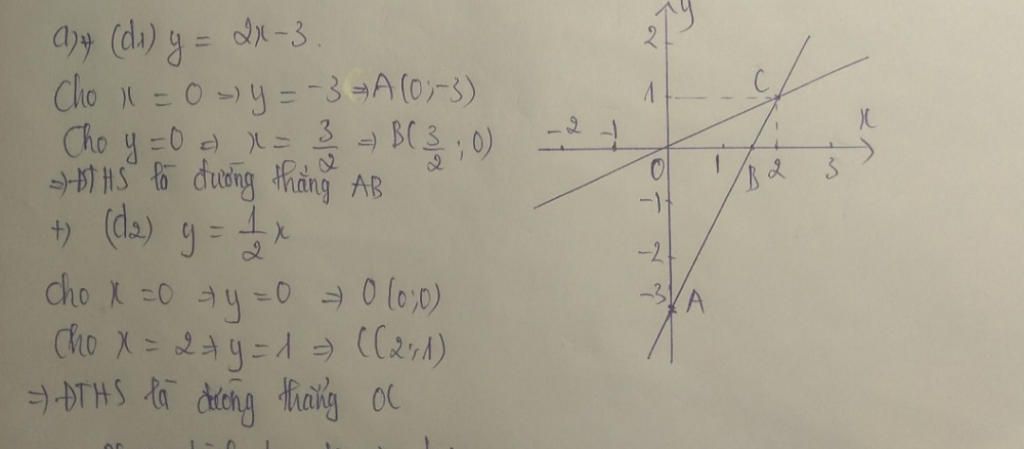 a) +) (d1) y = 2x - 3.
Cho x = 0 => y = -3 => A(0;-3)
Cho y = 0 => x = 3/2 => B(3/2; 0)
=> ĐTHS là đường thẳng AB
+) (d2) y = 1/2 x
Cho x = 0 => y = 0 => O(0;0)
Cho x = 2 => y = 1 => C(2;1)
=> ĐTHS là đường thẳng OC
y
2
C
1
x
-2 -1
O 1 B 2 3
-1
-2
-3 A